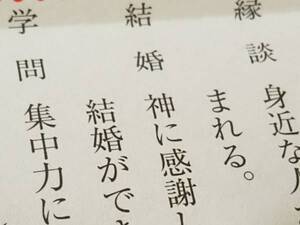 縁談 身近な
まれる。
結婚 神に感謝し
結婚ができ
学問 集中力に